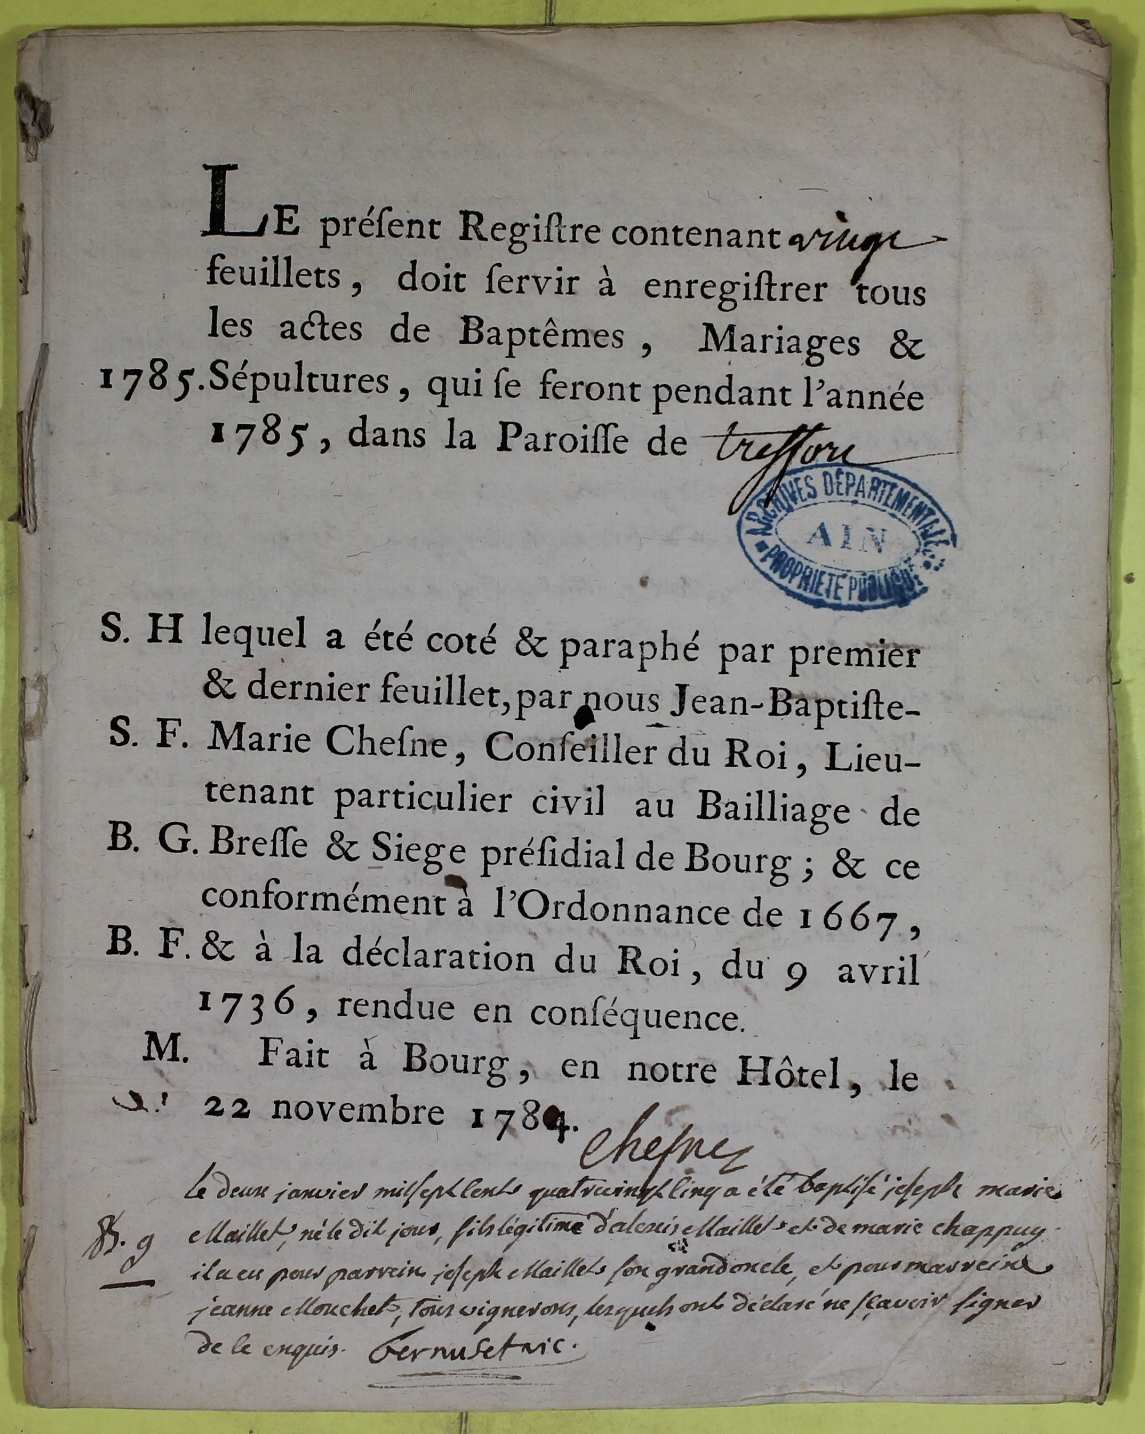 LE préſent Regiſtre contenant vingt
feuillets, doit ſervir à enregiſtrer tous
les actes de Baptêmes, Mariages &
1785. Sépultures, qui ſe feront pendant l'année
1785, dans la Paroiſſe de treffort
ARCHIVES DÉPARTEMENTALES
AIN
PROPRIÉTÉ PUBLIQUE
S. H lequel a été coté & paraphé par premier
& dernier feuillet, par nous Jean-Baptiſte-
S. F. Marie Cheſne, Conſeiller du Roi, Lieu-
tenant particulier civil au Bailliage de
B. G. Breſſe & Siege préſidial de Bourg; & ce
conformément à l'Ordonnance de 1667,
B. F. & à la déclaration du Roi, du 9 avril
1736, rendue en conſéquence.
M. Fait à Bourg, en notre Hôtel, le
22 novembre 1784.
cheſne
le deux janvier mil ſept cents quatrevingt cinq a été baptiſé joſeph marie
Maillet, né le dit jour, fils légitime d'alexis Maillet et de marie chappuy
B. g
il a eu pour parrein joſeph Maillet ſon grand oncle, et pour marreine
jeanne Mouchet, tous vignerons, lesquels ont déclaré ne ſçavoir ſigner
de ce enquis. Bernuset vic.